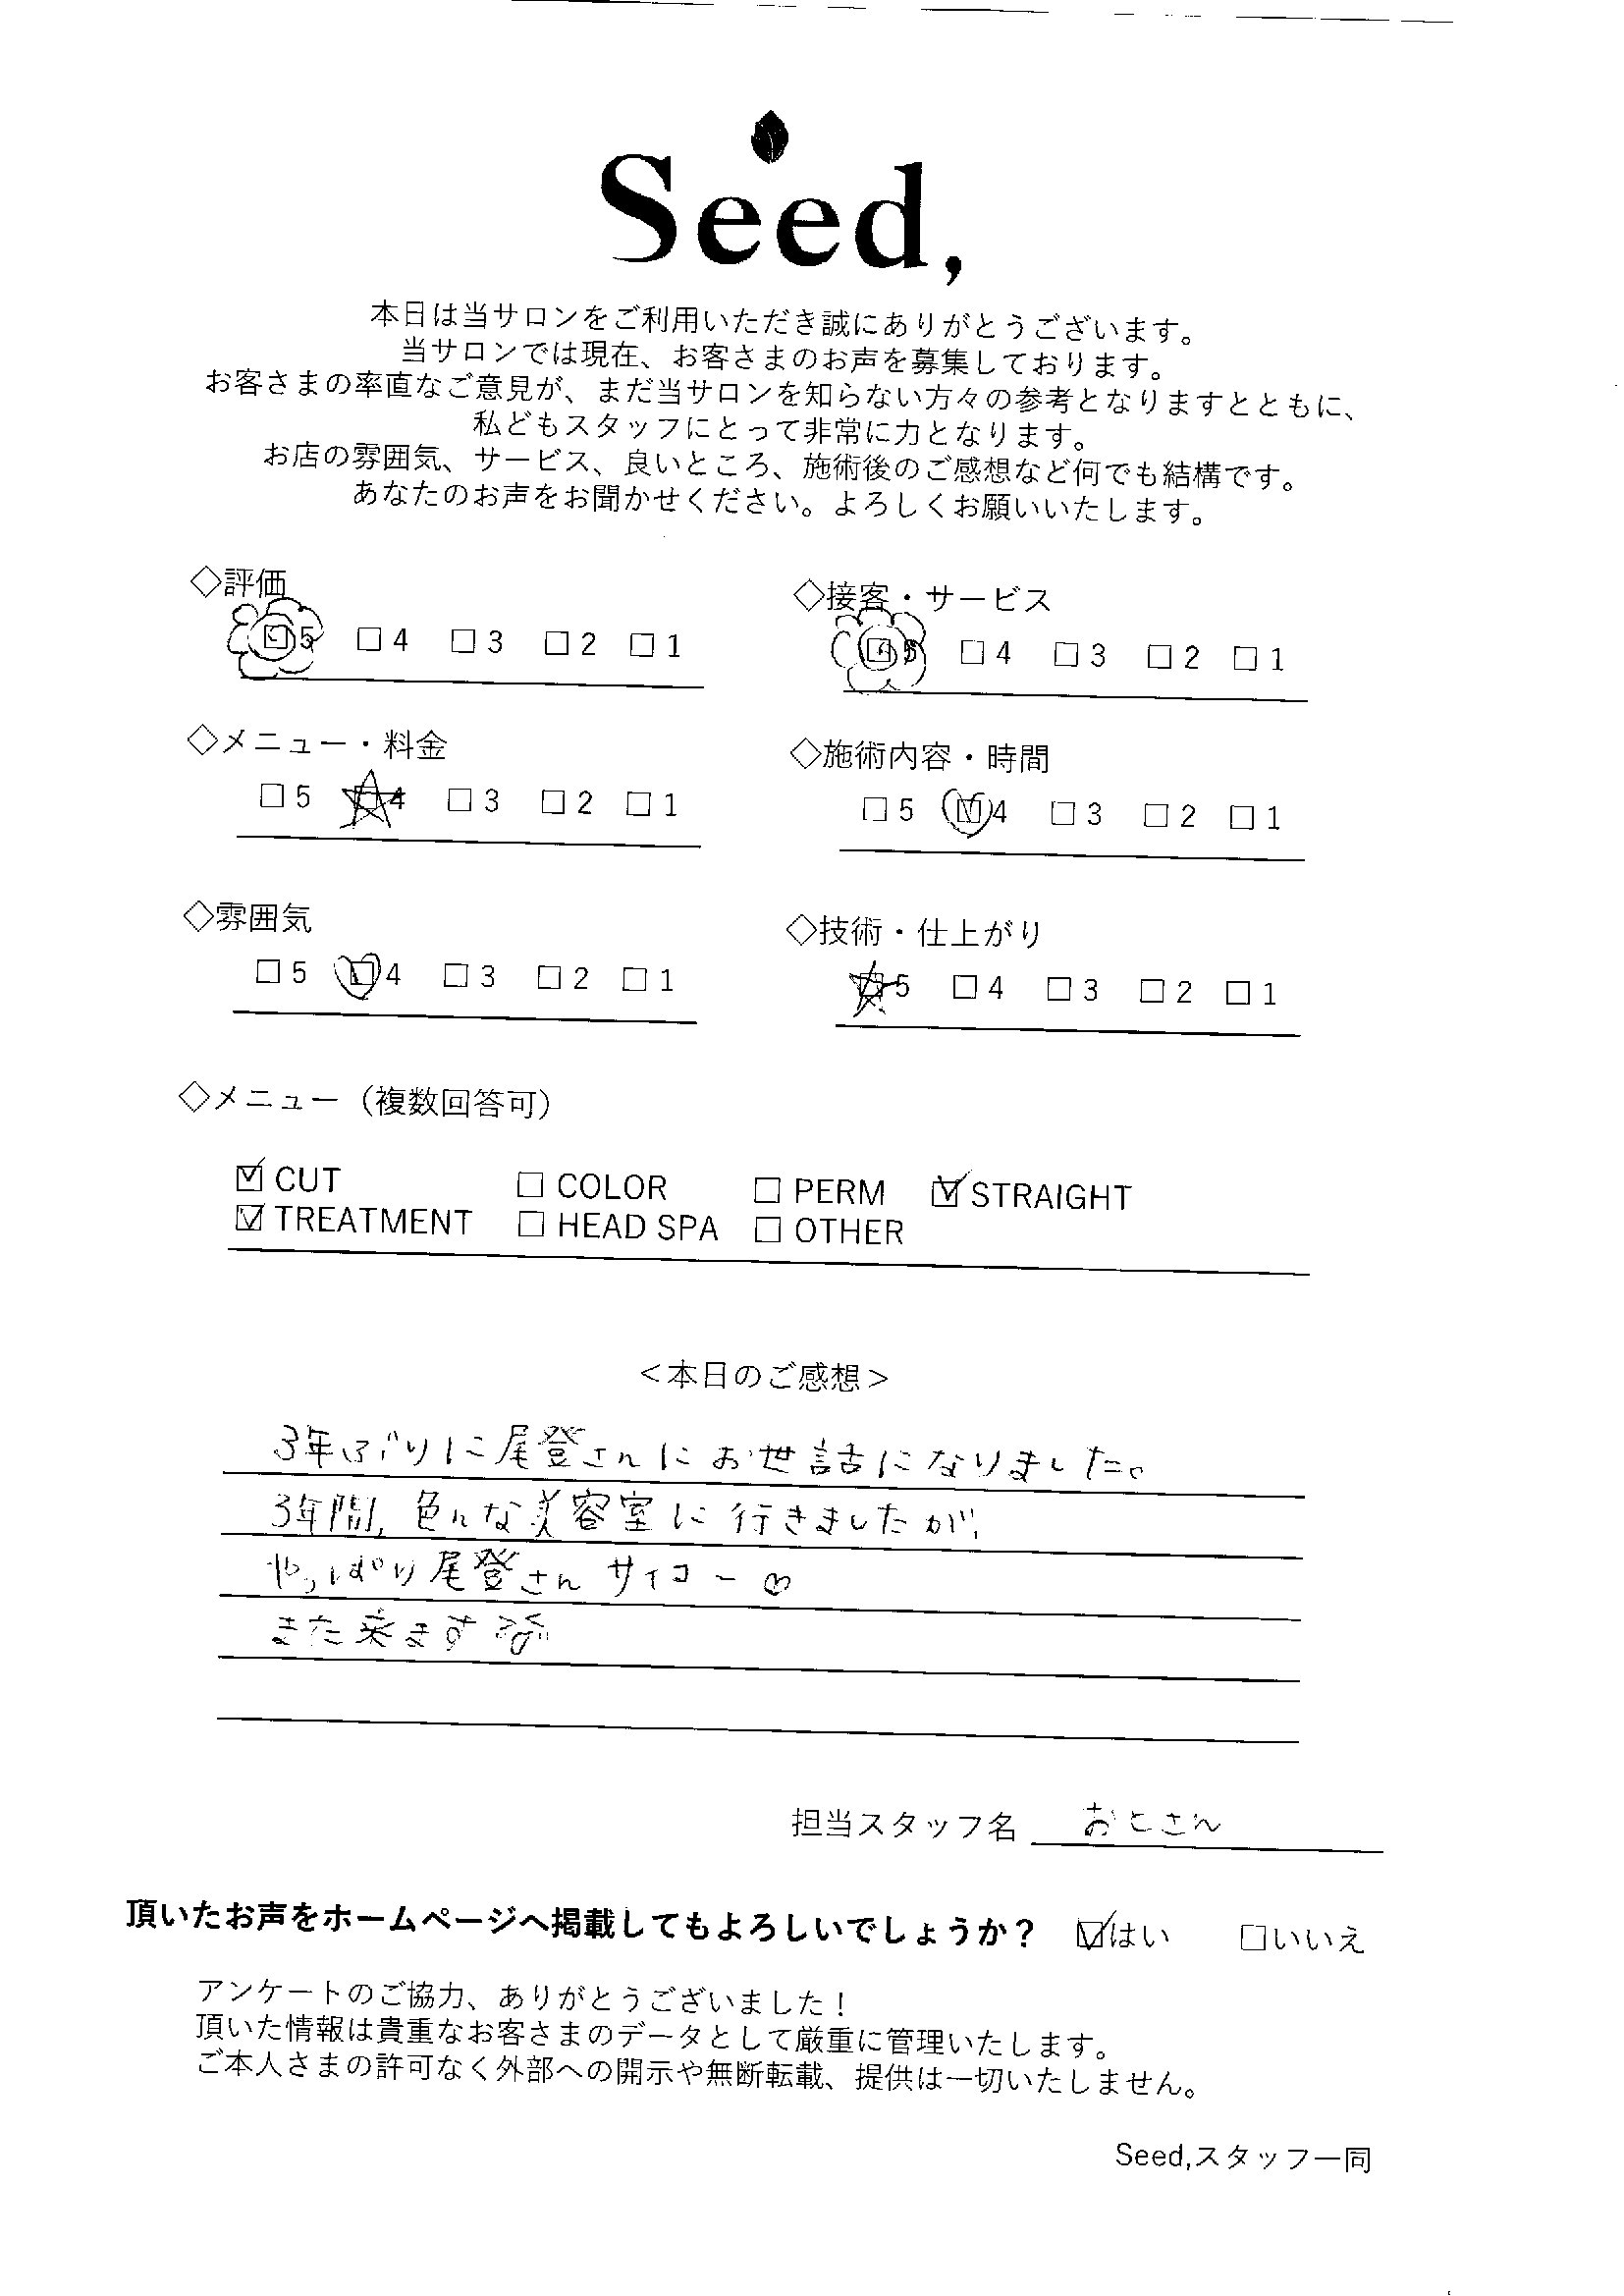 Seed,
本日は当サロンをご利用いただき誠にありがとうございます。
当サロンでは現在、お客さまのお声を募集しております。
お客さまの率直なご意見が、まだ当サロンを知らない方々の参考となりますとともに、
私どもスタッフにとって非常に力となります。
お店の雰囲気、サービス、良いところ、施術後のご感想など何でも結構です。
あなたのお声をお聞かせください。よろしくお願いいたします。
◇評価
☑5 □4 □3 □2 □1
◇接客・サービス
☑5 □4 □3 □2 □1
◇メニュー・料金
□5 ☑4 □3 □2 □1
◇施術内容・時間
□5 ☑4 □3 □2 □1
◇雰囲気
□5 ☑4 □3 □2 □1
◇技術・仕上がり
☑5 □4 □3 □2 □1
◇メニュー（複数回答可）
☑CUT □COLOR □PERM ☑STRAIGHT
☑TREATMENT □HEAD SPA □OTHER
＜本日のご感想＞
3年ぶりに尾登さんにお世話になりました。
3年間、色んな美容室に行きましたが、
やっぱり尾登さんサイコー♡
また来ます
担当スタッフ名 おとさん
頂いたお声をホームページへ掲載してもよろしいでしょうか？ ☑はい □いいえ
アンケートのご協力、ありがとうございました！
頂いた情報は貴重なお客さまのデータとして厳重に管理いたします。
ご本人さまの許可なく外部への開示や無断転載、提供は一切いたしません。
Seed,スタッフ一同